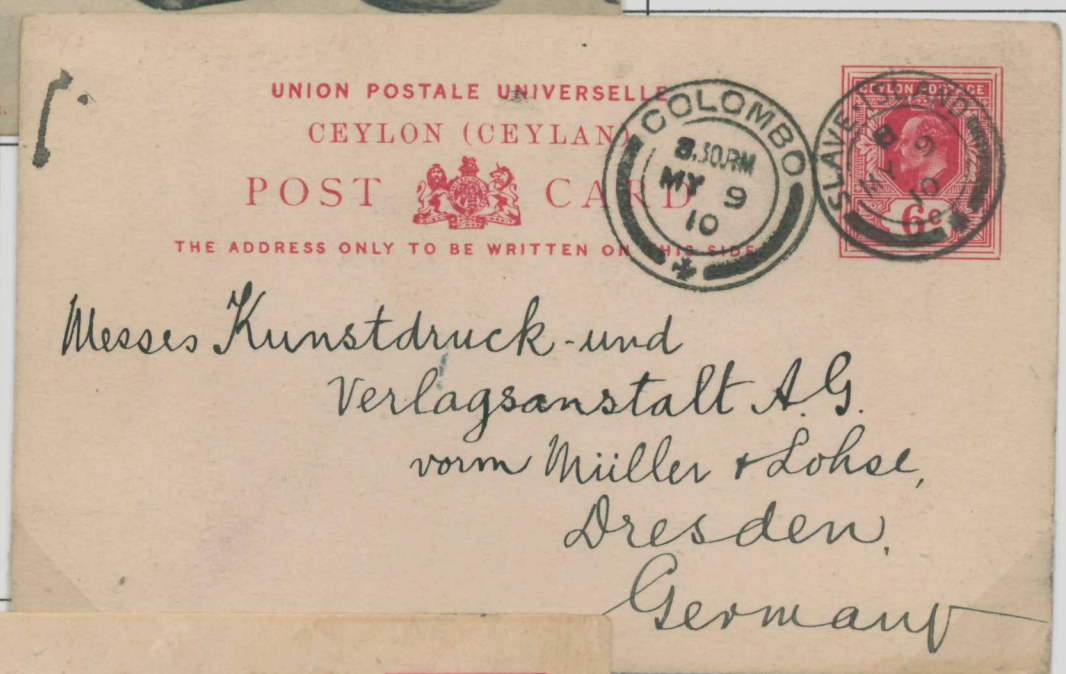 UNION POSTALE UNIVERSELLE
CEYLON (CEYLAN)
POST CARD
THE ADDRESS ONLY TO BE WRITTEN ON THIS SIDE
COLOMBO
8.30 PM
MY 9
10
CEYLON POSTAGE
6c
SLAVE-ISLAND
8
MY 9
10
Messes Kunstdruck-und
Verlagsanstalt A.G.
vorm Müller & Lohse,
Dresden,
Germany